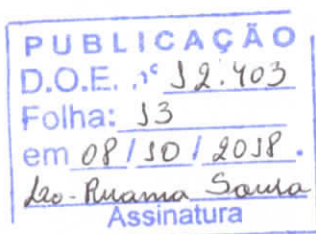 PUBLICAÇÃO
D.O.E. nº 12.403
Folha: 13
em 08/10/2018.
Leo-Ruama Sousa
Assinatura